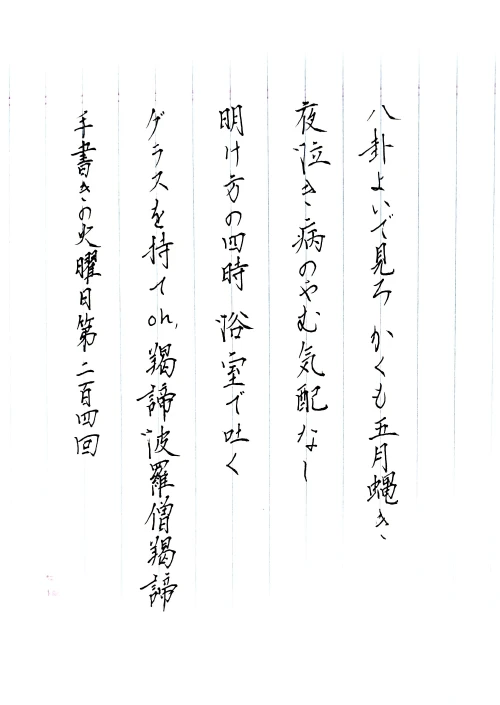 八卦よいで見ろ かくも五月蝿き
夜泣き病のやむ気配なし
明け方の四時 浴室で吐く
グラスを持てoh, 羯諦波羅僧羯諦
手書きの火曜日第二百四回